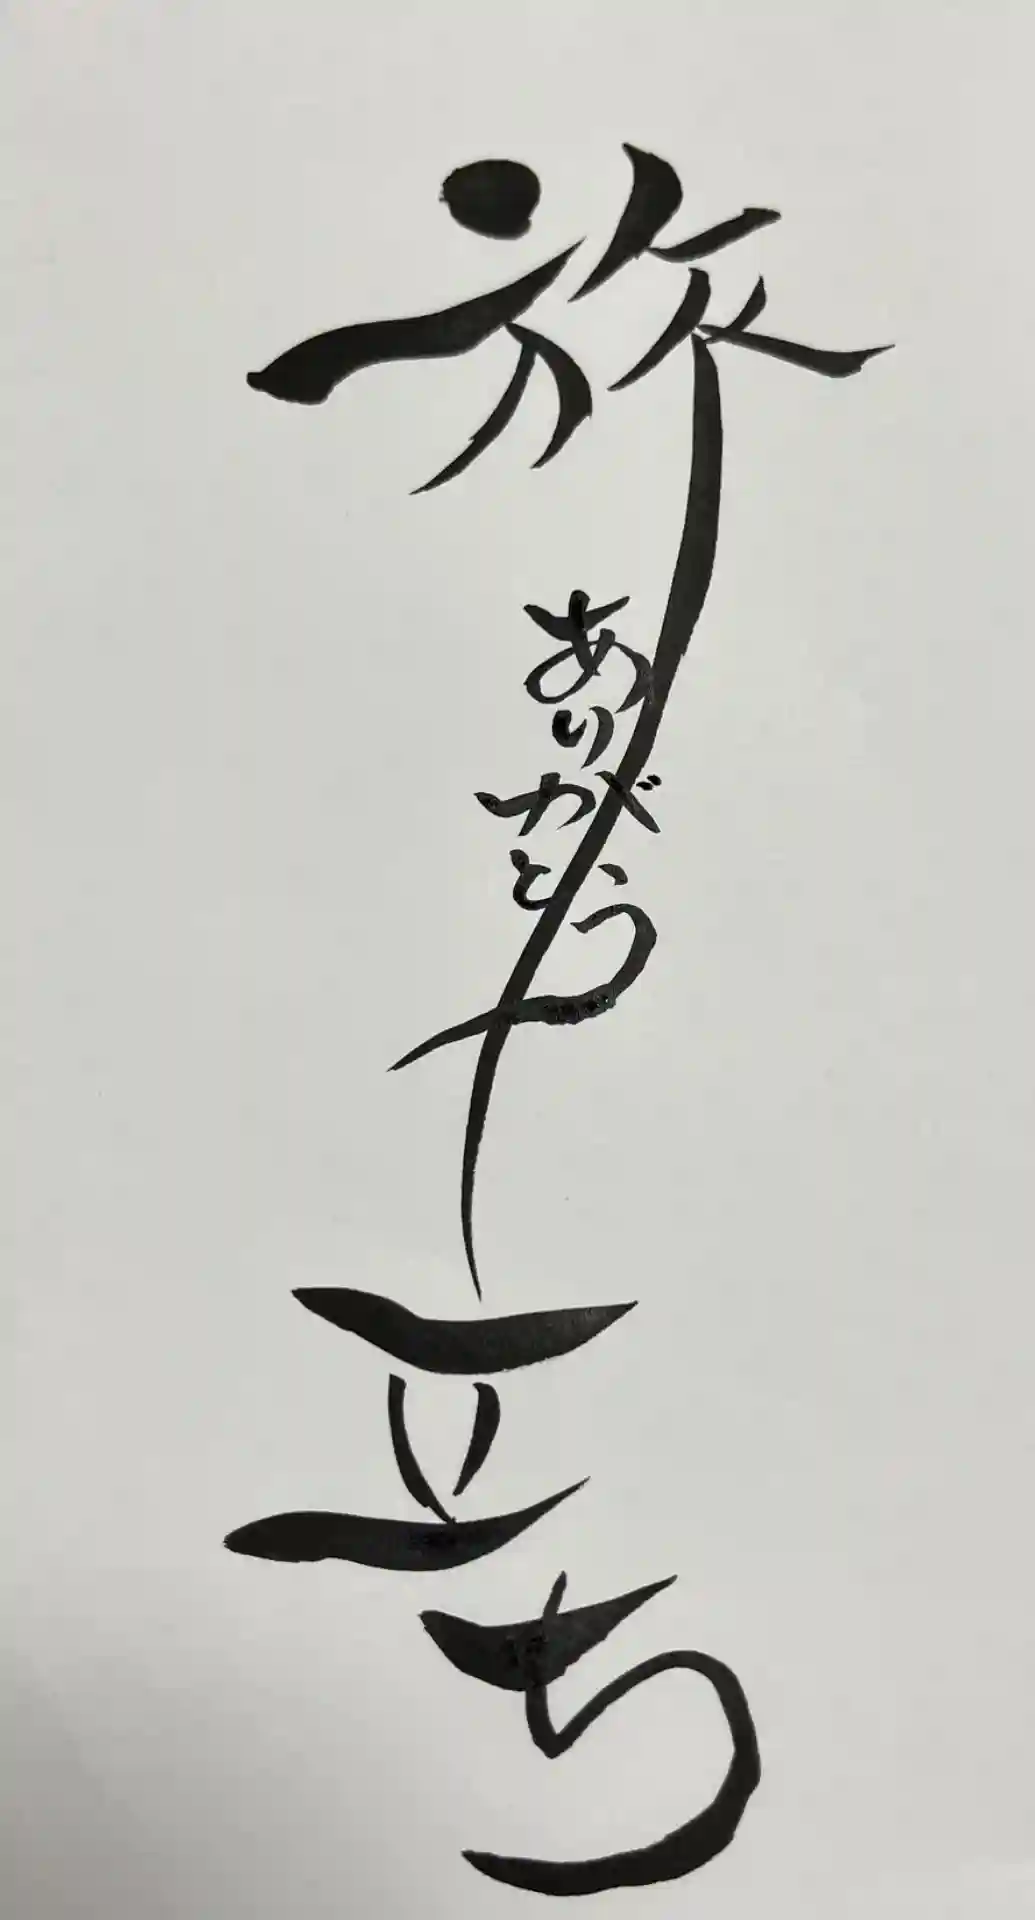 旅立ち
ありがとう